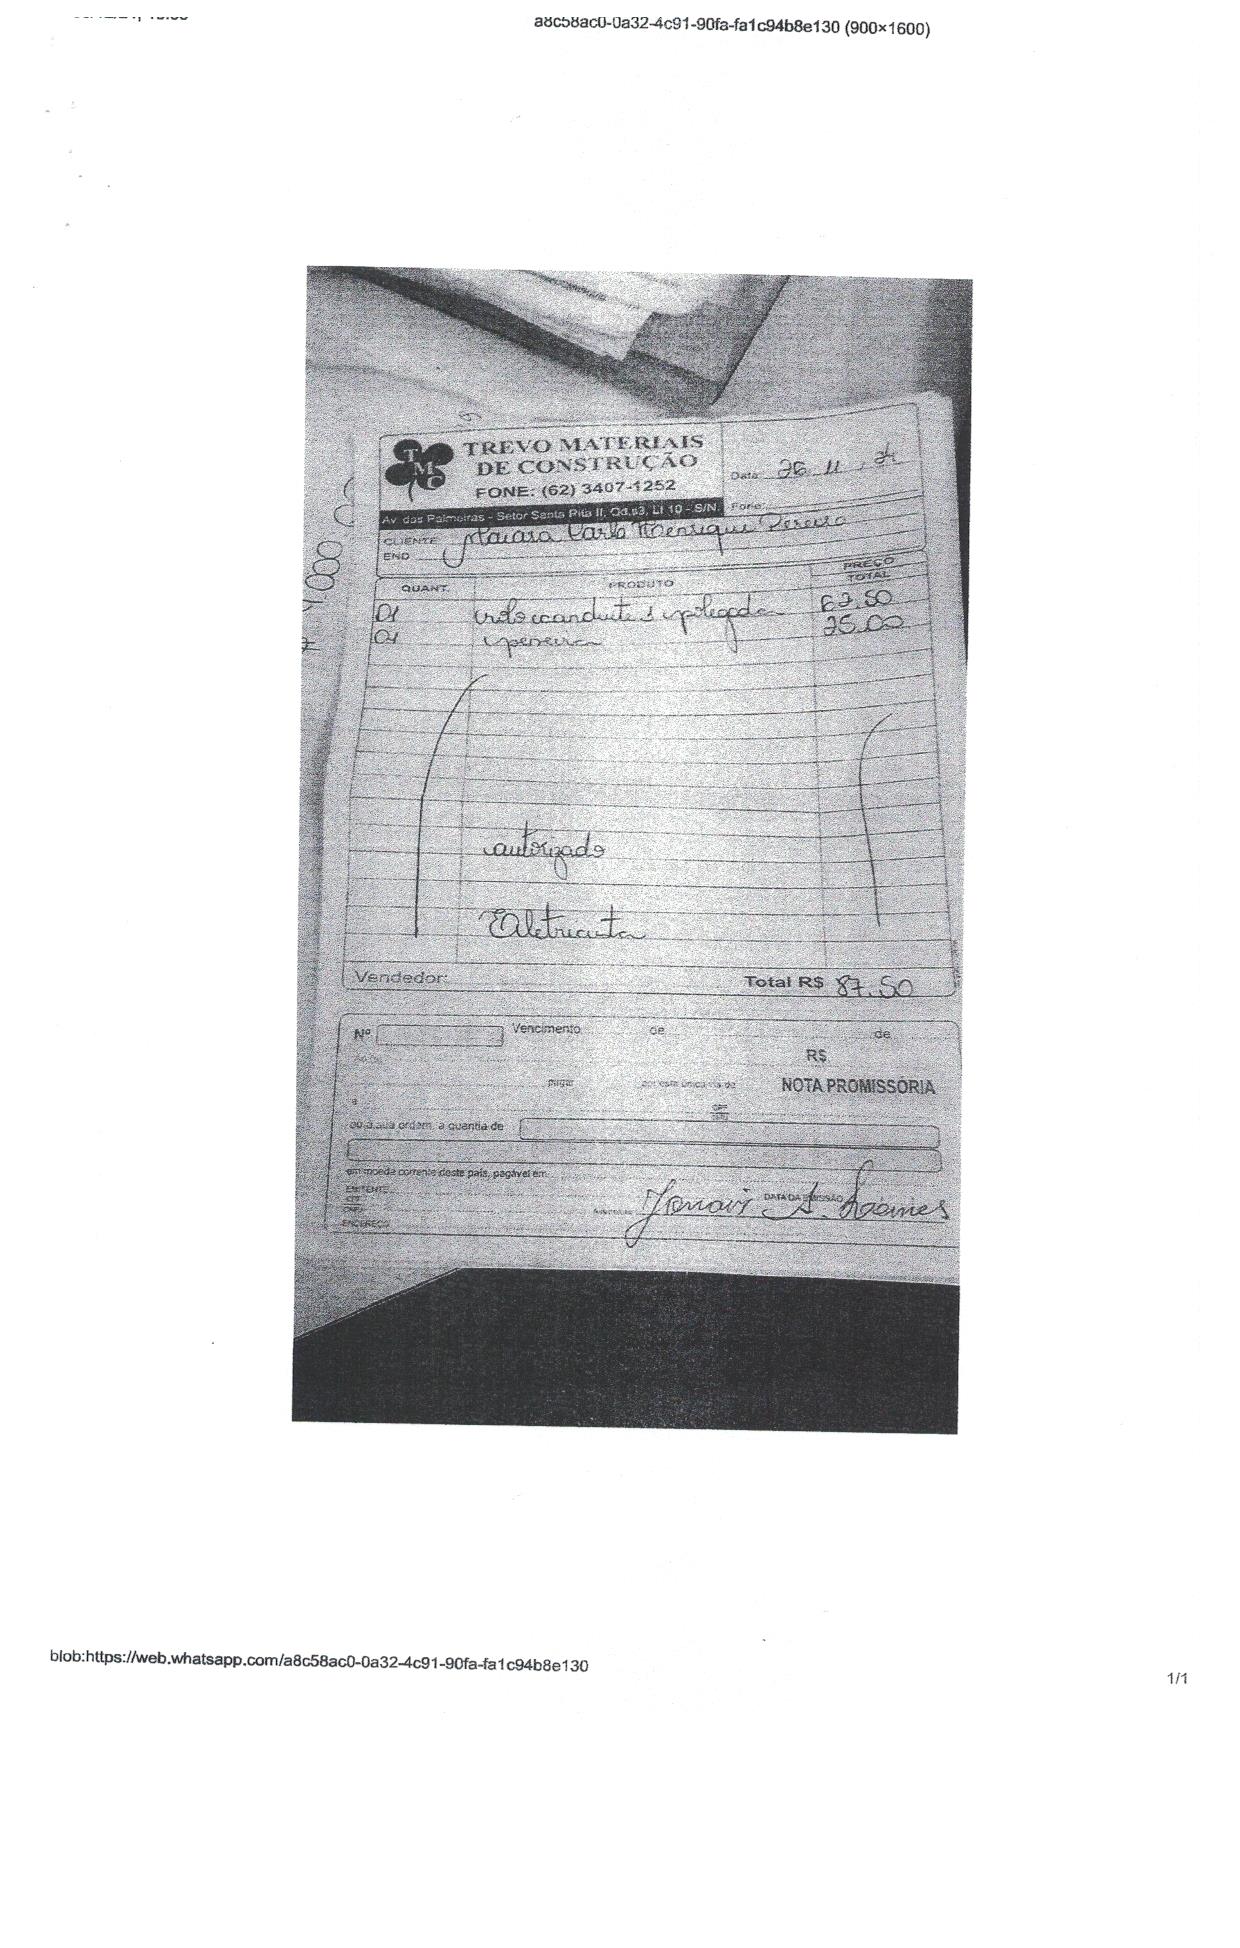 a8c58ac0-0a32-4c91-90fa-fa1c94b8e130 (900×1600)
TREVO MATERIAIS
DE CONSTRUÇÃO
FONE: (62) 3407-1252
Data: 11 24
Av das Palmeiras - Setor Santa Rita II, Qd. 3, Lt 10 - S/N. Fone:
CLIENTE Maiara Carlo Henrique Pereira
END
QUANT. PRODUTO PREÇO TOTAL
01 rolo conduite 1 polegada 62,50
01 peneira 25,00
autorizado
Eletricista
Vendedor: Total R$ 87,50
Nº Vencimento de de
R$
pagar por esta única via de NOTA PROMISSÓRIA
a CPF
ou à sua ordem, a quantia de
em moeda corrente deste país, pagável em
EMITENTE DATA DA EMISSÃO
CPF
ENDEREÇO
1000
blob:https://web.whatsapp.com/a8c58ac0-0a32-4c91-90fa-fa1c94b8e130
1/1